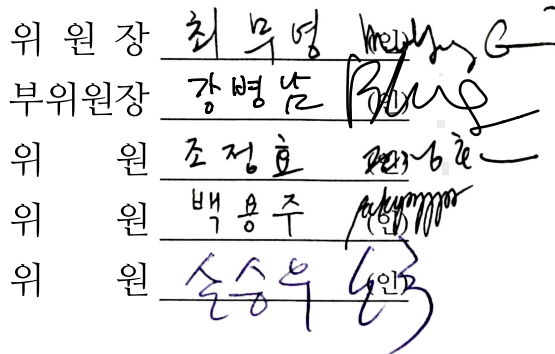 위 원 장 최 무 영 (인)
부위원장 강 병 남 (인)
위 원 조 정 효 (인)
위 원 백 용 주 (인)
위 원 손승우 (인)